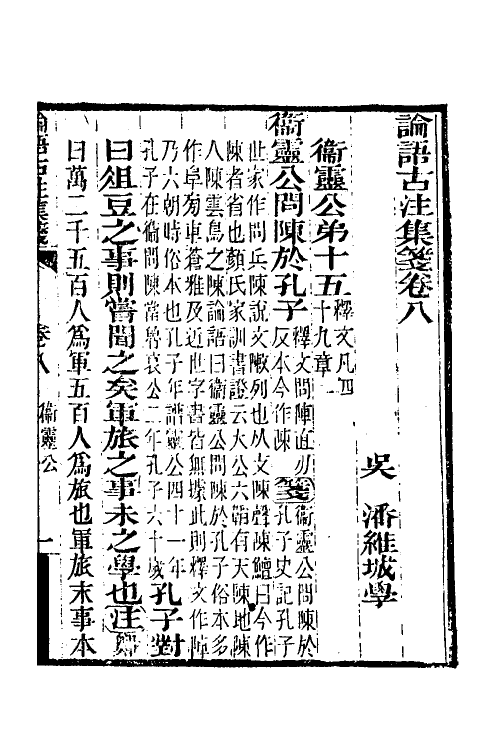 論語古注集箋卷八
吳　潘維城學
衞靈公弟十五 釋文凡四
十九章
衞靈公問陳於孔子 釋文問陣直刃
反本今作陳 箋 衞靈公問陳於
孔子史記孔子
世家作問兵陳說文敶列也从攴陳聲陳鱣曰今作
陳者省也顏氏家訓書證云大公六韜有天陳地陳
人陳雲鳥之陳論語曰衞靈公問陳於孔子俗本多
作阜旁車蒼雅及近世字書皆無據此則釋文作陣
乃六朝時俗本也孔子年譜靈公四十一年
孔子在衞問陳當魯哀公二年孔子六十歲 孔子對
曰俎豆之事則嘗聞之矣軍旅之事未之學也 注 鄭
曰萬二千五百人爲軍五百人爲旅也軍旅末事本
論語古注集箋　卷八　衞靈公　一